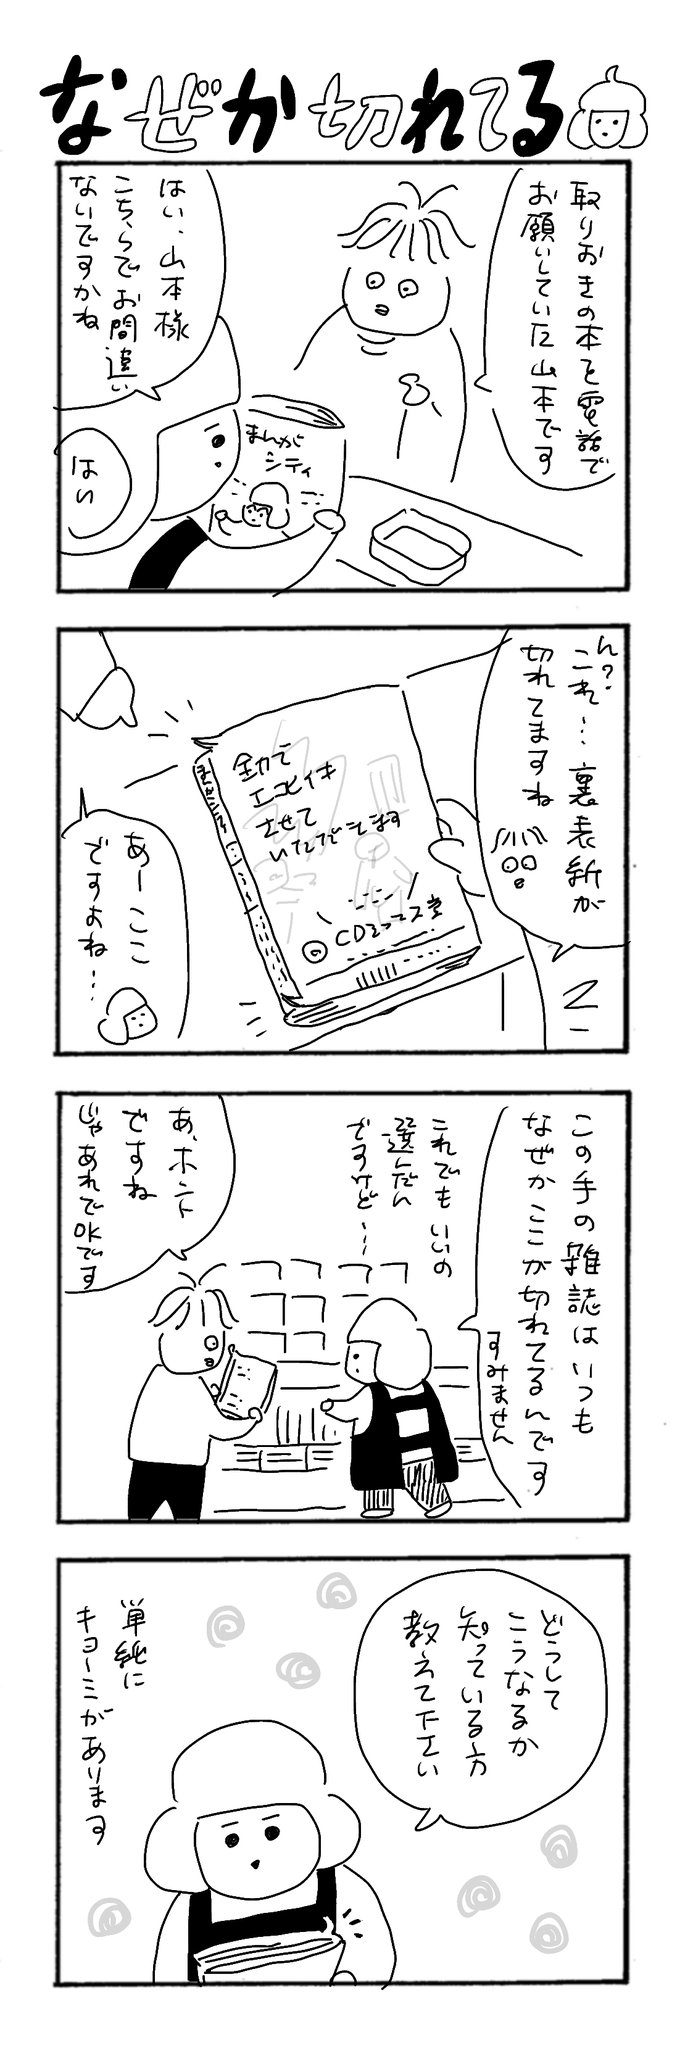 なぜか切れてる
取りおきの本を電話で
お願いしていた山本です
はい、山本様
こちらでお間違い
ないですかね
まんが
シティ
はい
ん?
これ…裏表紙が
切れてますね
全力で
エコヒイキ
させて
いただきます
あーここ
ですよね…
この手の雑誌はいつも
なぜかここが切れてるんです
すみません
これでもいいの
選んだん
ですけど…
あ、ホント
ですね
じゃあれでOKです
どうして
こうなるか
知っている方
教えて下さい
単純に
キョーミがあります